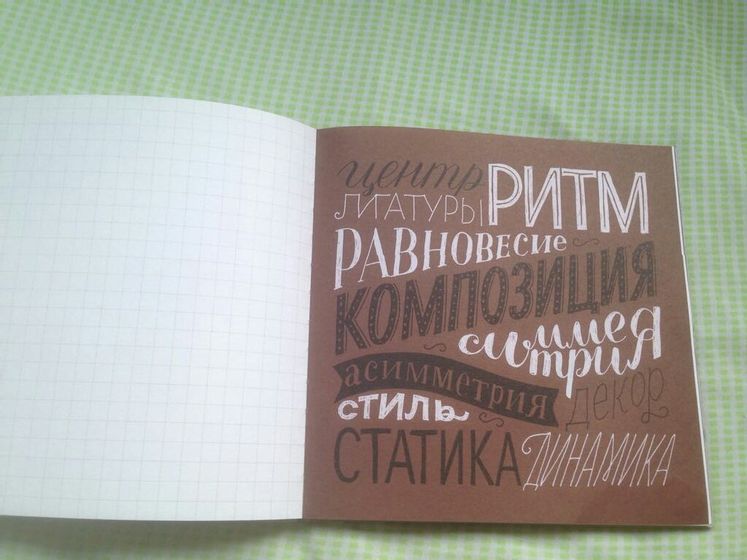 центр РИТМ
ЛИГАТУРЫ
РАВНОВЕСИЕ
КОМПОЗИЦИЯ
симметрия
асимметрия
декор
СТИЛЬ
СТАТИКА ДИНАМИКА